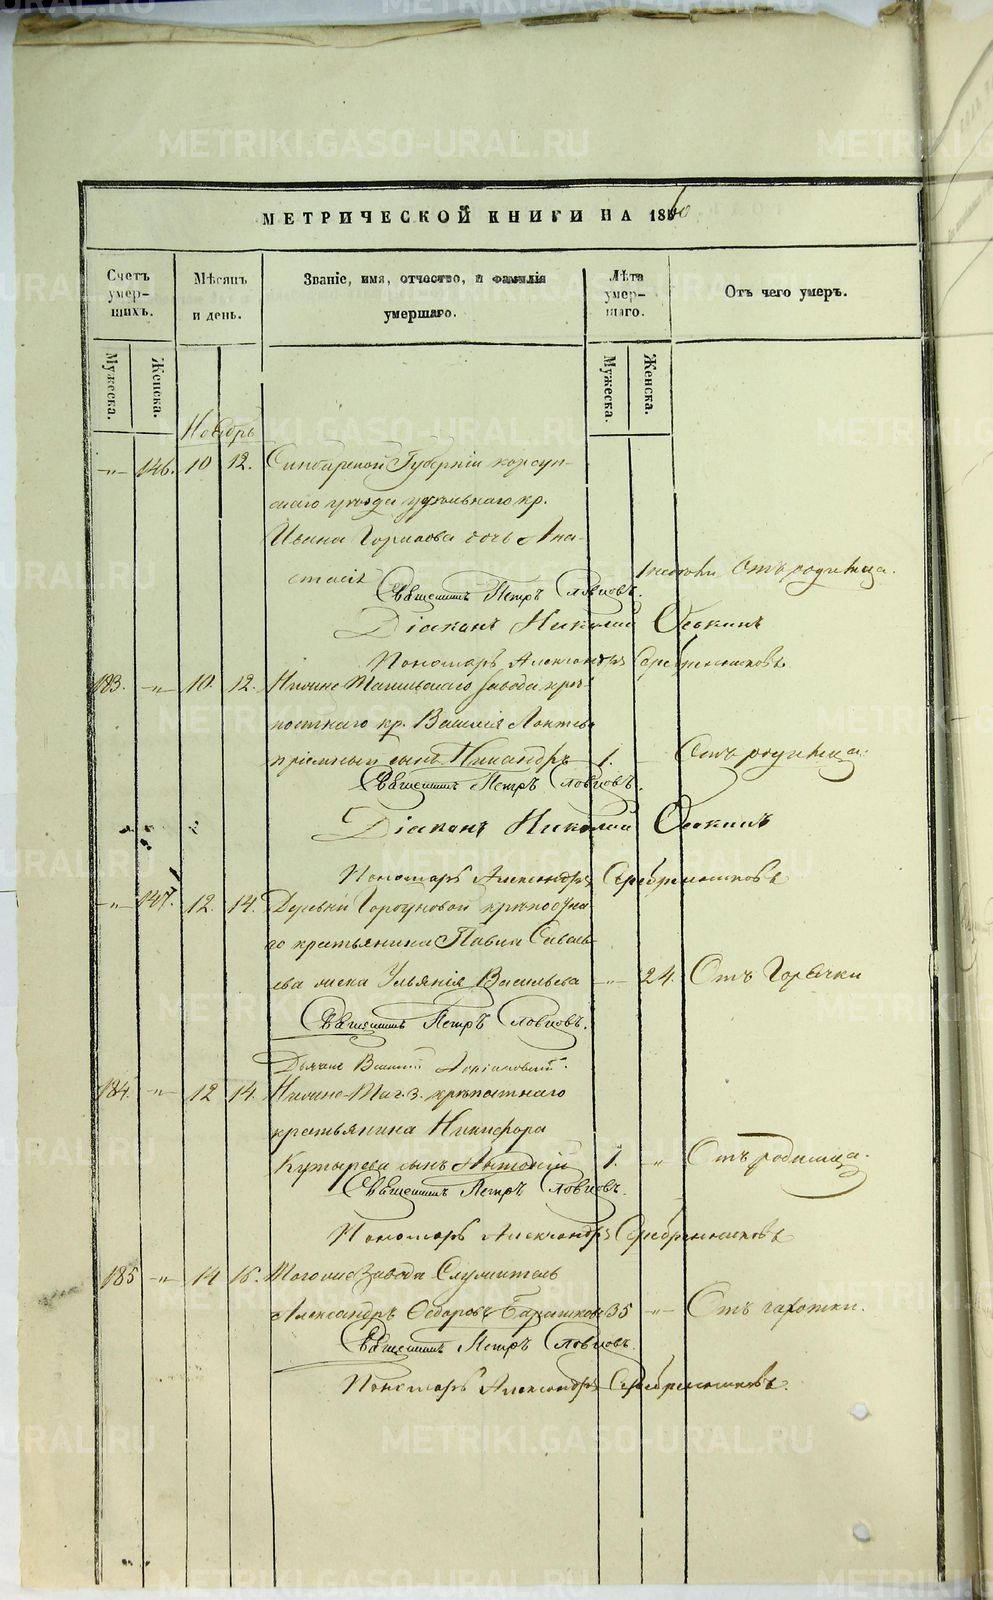 МЕТРИЧЕСКОЙ КНИГИ НА 1860
Счетъ умер-шихъ.
Мѣсяцъ и день.
Званіе, имя, отчество, и фамилія умершаго.
Лѣта умер-шаго.
Отъ чего умеръ.
Мужеска.
Женска.
Мужеска.
Женска.
Ноябрь
-"- 146. 10 12. Симбирской Губерніи корсун-
скаго уѣзда удѣльнаго кр.
Ивана дочь Ана-
стасія отъ родимца.
Священникъ Петръ Словцовъ.
Діаконъ Николай Оськинъ
Пономарь Александръ Серебренниковъ
183. -"- 10. 12. Нижне-Тагильскаго завода крѣ-
постнаго кр. Василія
пріемный сынъ Никандръ 1. Отъ родимца.
Священникъ Петръ Словцовъ.
Діаконъ Николай Оськинъ
Пономарь Александръ Серебренниковъ
-"- 147. 12. 14. Деревни Горбуновой крѣпостна-
го крестьянина Павла Савель-
ева жена Ульянія Васильева -"- 24. Отъ Горячки
Священникъ Петръ Словцовъ.
Дьячекъ Василій
184. -"- 12 14. Нижне-Таг. з. крѣпостнаго
крестьянина Никифора
Кутырева сынъ Антоній 1. " Отъ родимца.
Священникъ Петръ Словцовъ.
Пономарь Александръ Серебренниковъ
185 -"- 14 16. Тогоже Завода Служитель
Александръ Ѳедоровъ 35 -"- Отъ чахотки.
Священникъ Петръ Словцовъ.
Пономарь Александръ Серебренниковъ.
METRIKI.GASO-URAL.RU